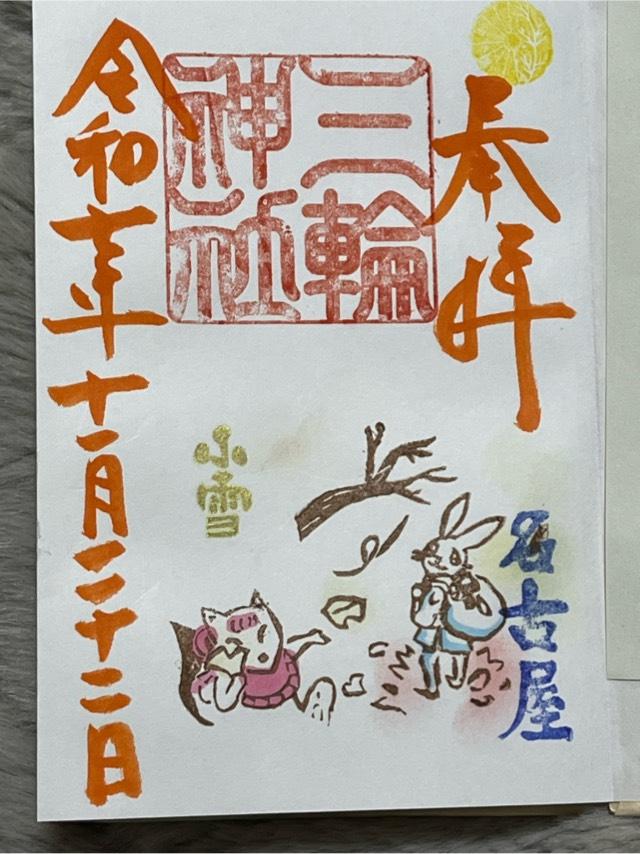 奉拝
三輪
神社
名古屋
小雪
令和
年十一月二十二日